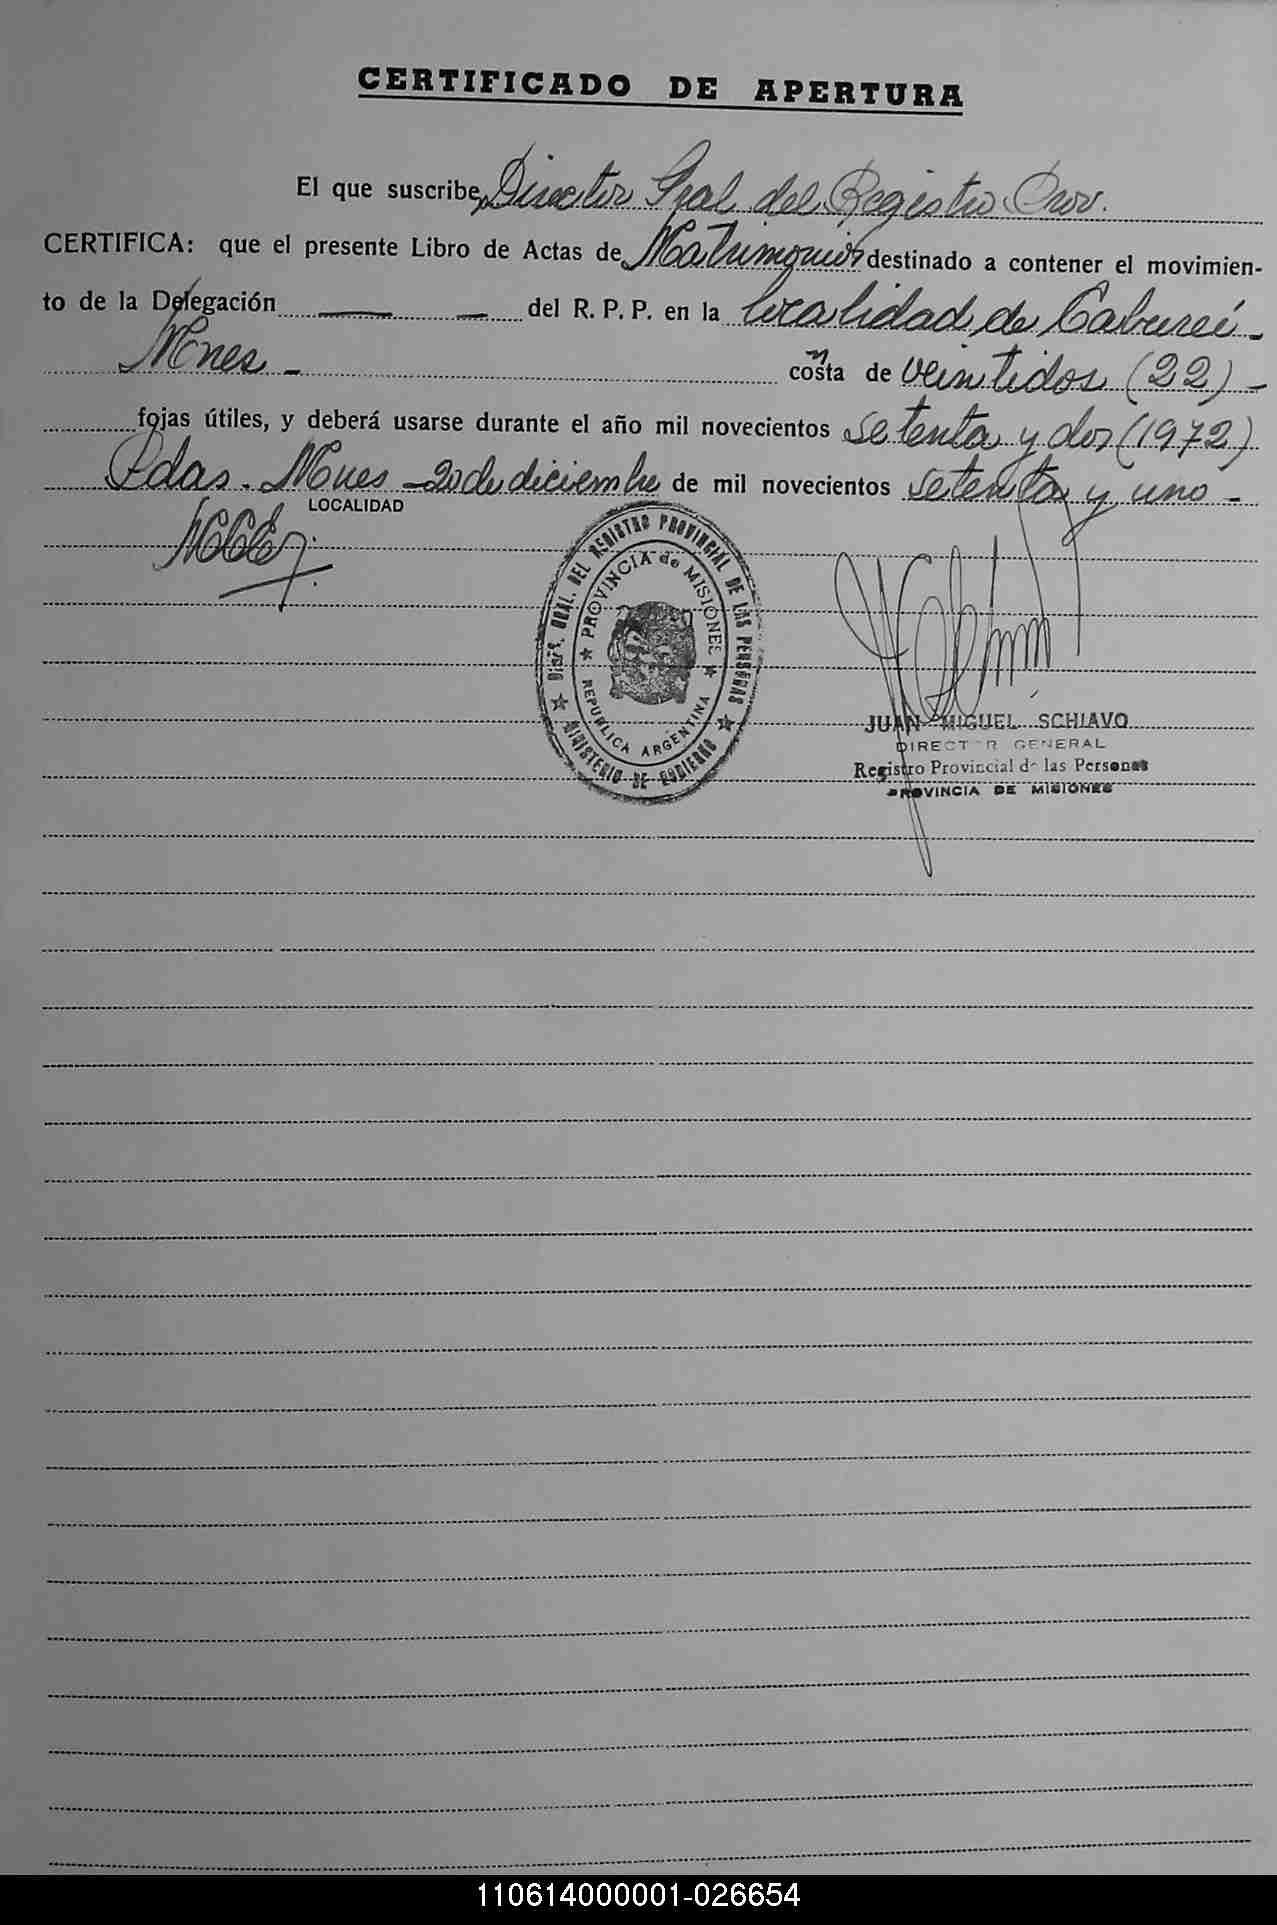 CERTIFICADO DE APERTURA
El que suscribe, Director Gral del Registro Prov.
CERTIFICA: que el presente Libro de Actas de Matrimonios destinado a contener el movimien-
to de la Delegación — — del R. P. P. en la localidad de Cabureí -
Mnes - consta de veintidos (22) -
fojas útiles, y deberá usarse durante el año mil novecientos setenta y dos (1972)
Pdas. Mnes - 20 de diciembre de mil novecientos setenta y uno -
LOCALIDAD
DIREC. GRAL. DEL REGISTRO PROVINCIAL DE LAS PERSONAS
PROVINCIA de MISIONES
REPUBLICA ARGENTINA
MINISTERIO DE GOBIERNO
JUAN MIGUEL SCHIAVO
DIRECTOR GENERAL
Registro Provincial de las Personas
PROVINCIA DE MISIONES
110614000001-026654